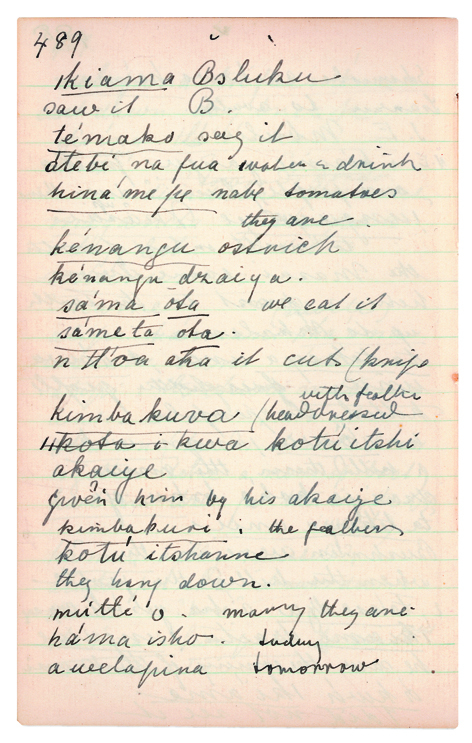 489
ikiama Bsluku
saw it B
témako saig it
átebí na fua water & drink
hiná me fe nabe tomatoes
they are
kénangu ostrich
kénangu dzaiya.
sáma ota we eat it
sámeta ota.
ntl'óa aka it cuts (knife
with feather
kimbakuva (headdressed
kota i kwa kotú itshi
akaiye
given him by his akaiye
kimbakuri : the feathers
kotú itshanne
they hang down.
mútlí o. many they are.
háma isho. today
awelapina tomorrow